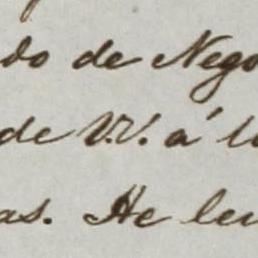 do de Nego
de V.V. á l
as. He le